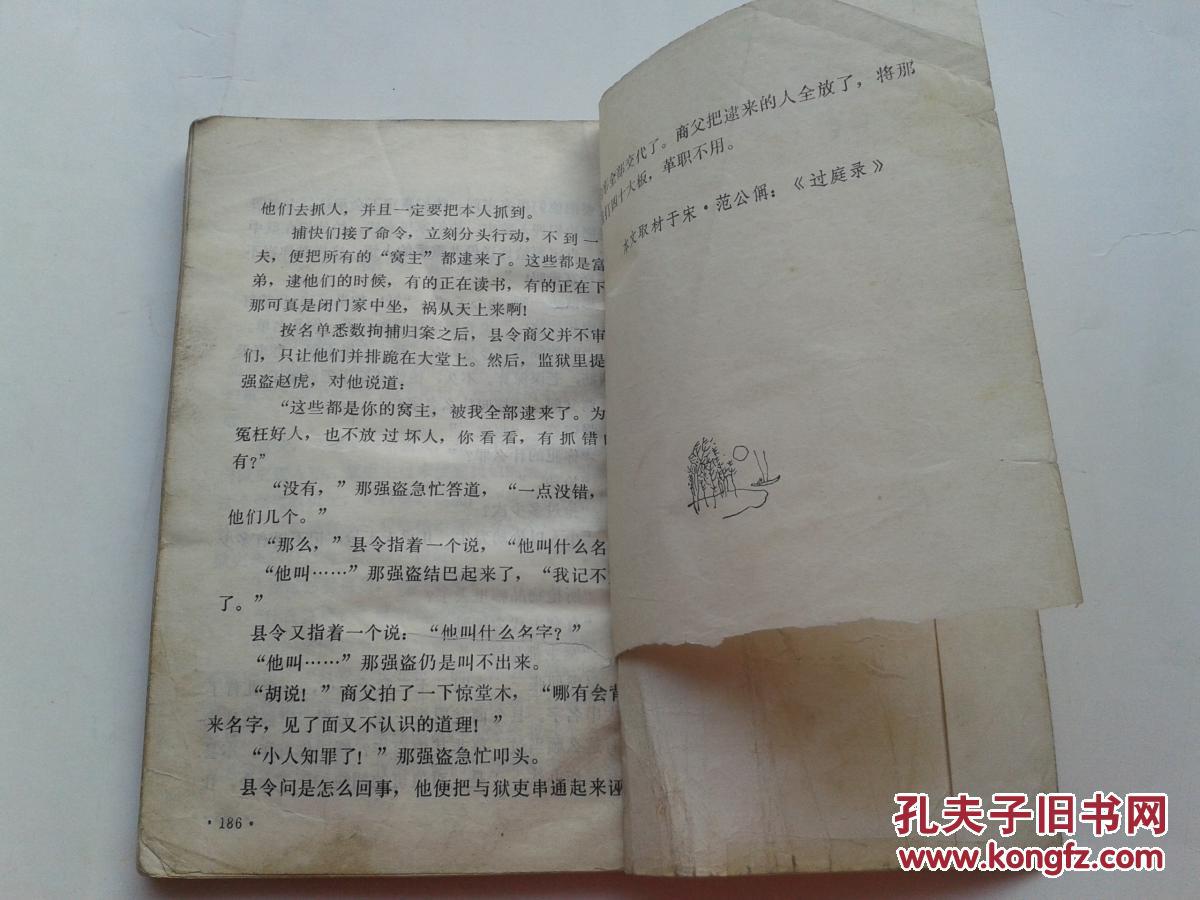 他们去抓人，并且一定要把本人抓到。
捕快们接了命令，立刻分头行动，不到一
夫，便把所有的“窝主”都逮来了。这些都是富
弟，逮他们的时候，有的正在读书，有的正在下
那可真是闭门家中坐，祸从天上来啊！
按名单悉数拘捕归案之后，县令商父并不审
们，只让他们并排跪在大堂上。然后，监狱里提
强盗赵虎，对他说道：
“这些都是你的窝主，被我全部逮来了。为
冤枉好人，也不放过坏人，你看看，有抓错
有？”
“没有，”那强盗急忙答道，“一点没错，
他们几个。”
“那么，”县令指着一个说，“他叫什么名
“他叫……”那强盗结巴起来了，“我记不
了。”
县令又指着一个说：“他叫什么名字？”
“他叫……”那强盗仍是叫不出来。
“胡说！”商父拍了一下惊堂木，“哪有会背
来名字，见了面又不认识的道理！”
“小人知罪了！”那强盗急忙叩头。
县令问是怎么回事，他便把与狱吏串通起来诬
·186·
全部交代了。商父把逮来的人全放了，将那
打四十大板，革职不用。
本文取材于宋·范公偁：《过庭录》
孔夫子旧书网
www.kongfz.com